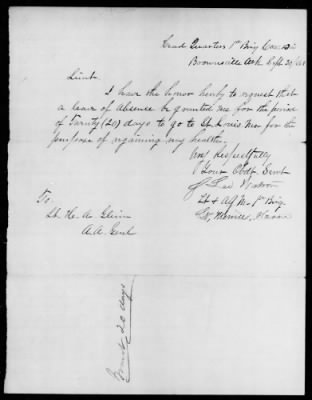 Head Quarters 1st Brig Cav Div
Brownsville Ark Sept 20/
Lieut
I have the honor herby to request that
a leav of Absence be granted me for the period
of Twenty (20) days to go to St Louis Mo for the
purpose of regaining my health.
Very Respectfully
Your Obdt Servt
J Lee
Lt & A.Q.M. 1st Brig
To
Lt He. A.
A.A. Genl
20 days